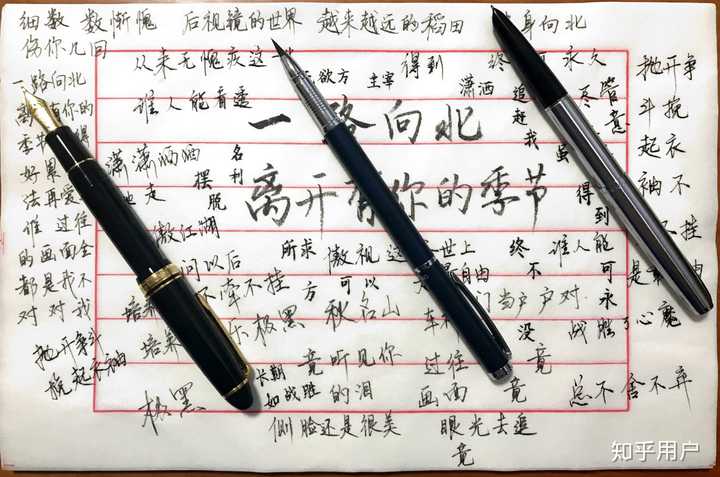 细数 数惭愧 后视镜的世界 越来越远的稻田 身向北
伤你几回
从来无愧疚这一
欲方 主宰 得到 终 可 永久
潇洒 追赶我虽
尽管意
抛开争斗挽起衣袖不
谁人能看透
一路向北
离 有你的
季 得
好累
法再爱
谁 过往
的画面全
都是我不
对 对我
抛开争斗
挽起衣袖
一路向北
离开有你的季节
潇潇洒洒
地走 摆脱
名利
傲江湖
问以后
所求 傲视这 世上
方可以
自由
终不
谁人能
得到
可永
不牵不挂
培养
培养 乐 极黑 秋名山
门当户户对
没 战胜了心魔
不挂
是
由
长期
如战胜
竟听见你
的泪
过往
画面
竟
竟
总不舍不弃
极黑
侧脸还是很美 眼光去追
竟
知乎用户